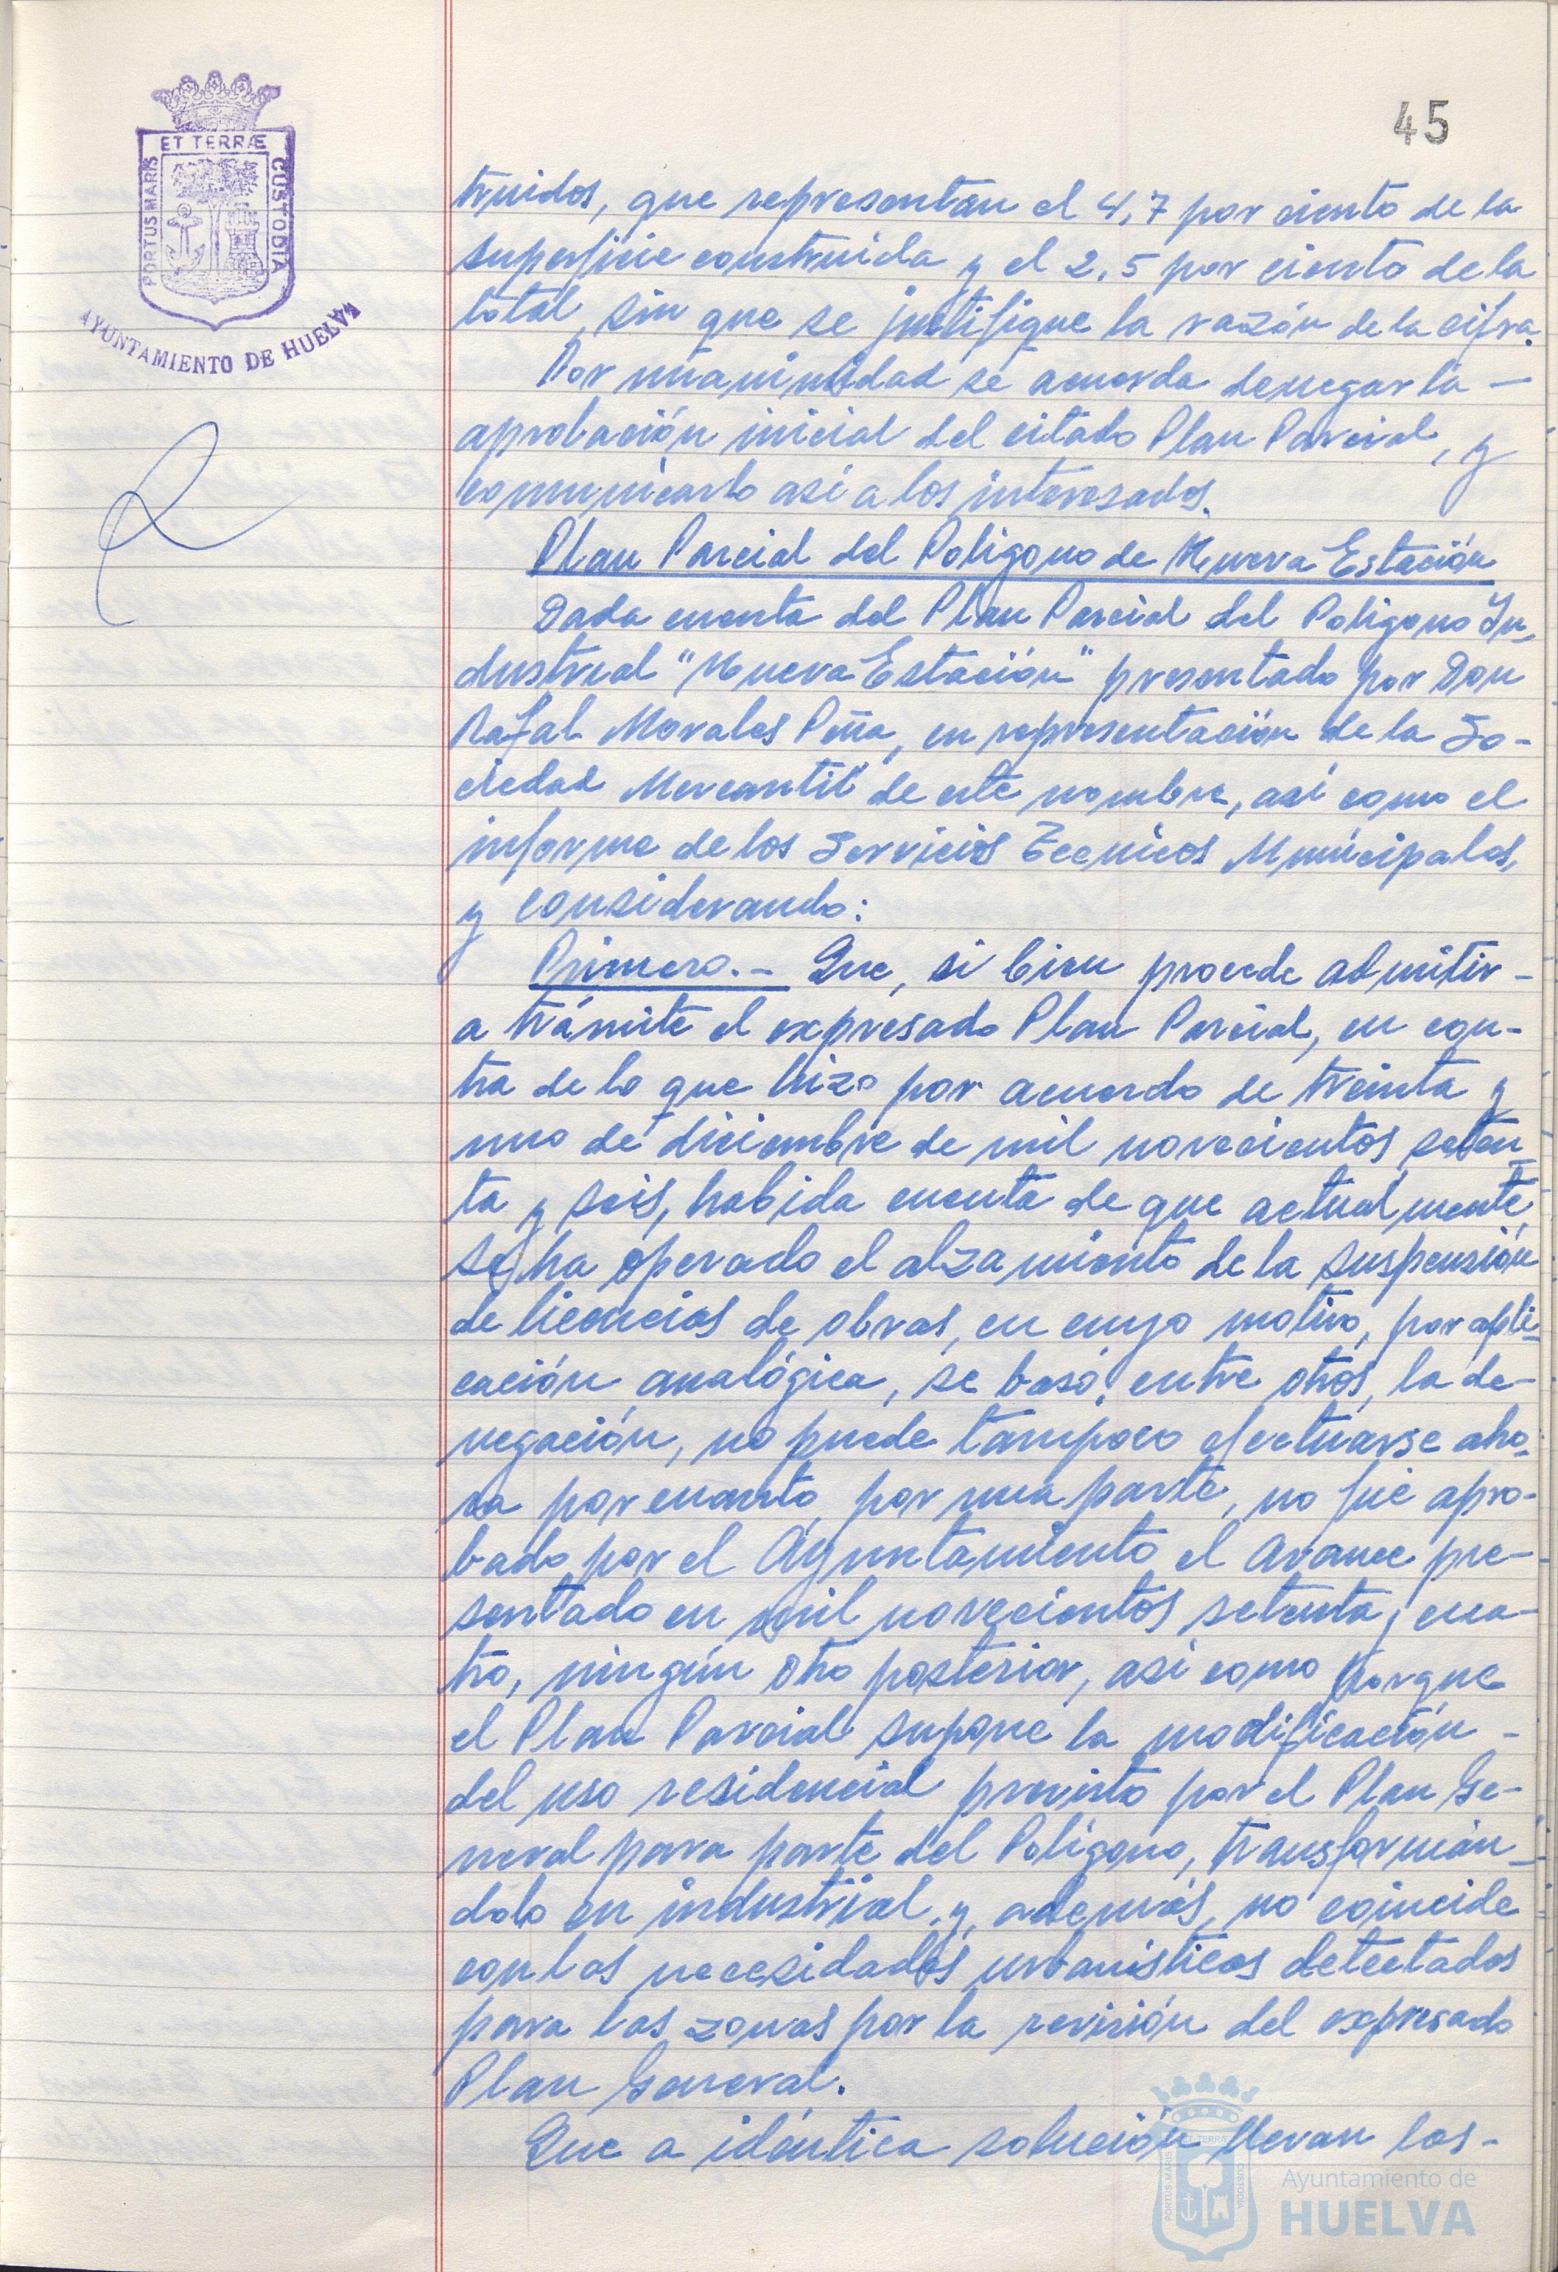 45
ET TERRÆ
PORTUS MARIS
CUSTODIA
AYUNTAMIENTO DE HUELVA
truidos, que representan el 4,7 por ciento de la
superficie construida y el 2,5 por ciento de la
total, sin que se justifique la razón de la cifra.
Por unanimidad se acuerda denegar la -
aprobación inicial del citado Plan Parcial, y
comunicarlo así a los interesados.
Plan Parcial del Poligono de Nueva Estación
Dada cuenta del Plan Parcial del Poligono In-
dustrial "Nueva Estación" presentado por Don
Rafal Morales Peña, en representación de la So-
ciedad Mercantil de este nombre, así como el
informe de los Servicios Tecnicos Municipales,
y considerando:
Primero.- Que, si bien procede admitir -
a trámite el expresado Plan Parcial, en con-
tra de lo que hizo por acuerdo de treinta y
uno de diciembre de mil novecientos seten-
ta y seis, habida cuenta de que actualmente
se ha operado el alzamiento de la suspensión
de licencias de obras, en cuyo motivo, por apli-
cación analógica, se basó, entre otros, la de-
negación, no puede tampoco efectuarse aho-
ra por cuanto, por una parte, no fue apro-
bado por el Ayuntamiento el Avance pre-
sentado en mil novecientos setenta y cua-
tro, ningún otro posterior, así como porque
el Plan Parcial supone la modificación -
del uso residencial previsto por el Plan Ge-
neral para parte del Poligono, transformán-
dolo en industrial y, además, no coincide
con las necesidades urbanísticas detectados
para las zonas por la revisión del expresado
Plan General.
Que a idéntica solución llevan los -
ET TERRÆ
PORTUS MARIS
CUSTODIA
Ayuntamiento de
HUELVA